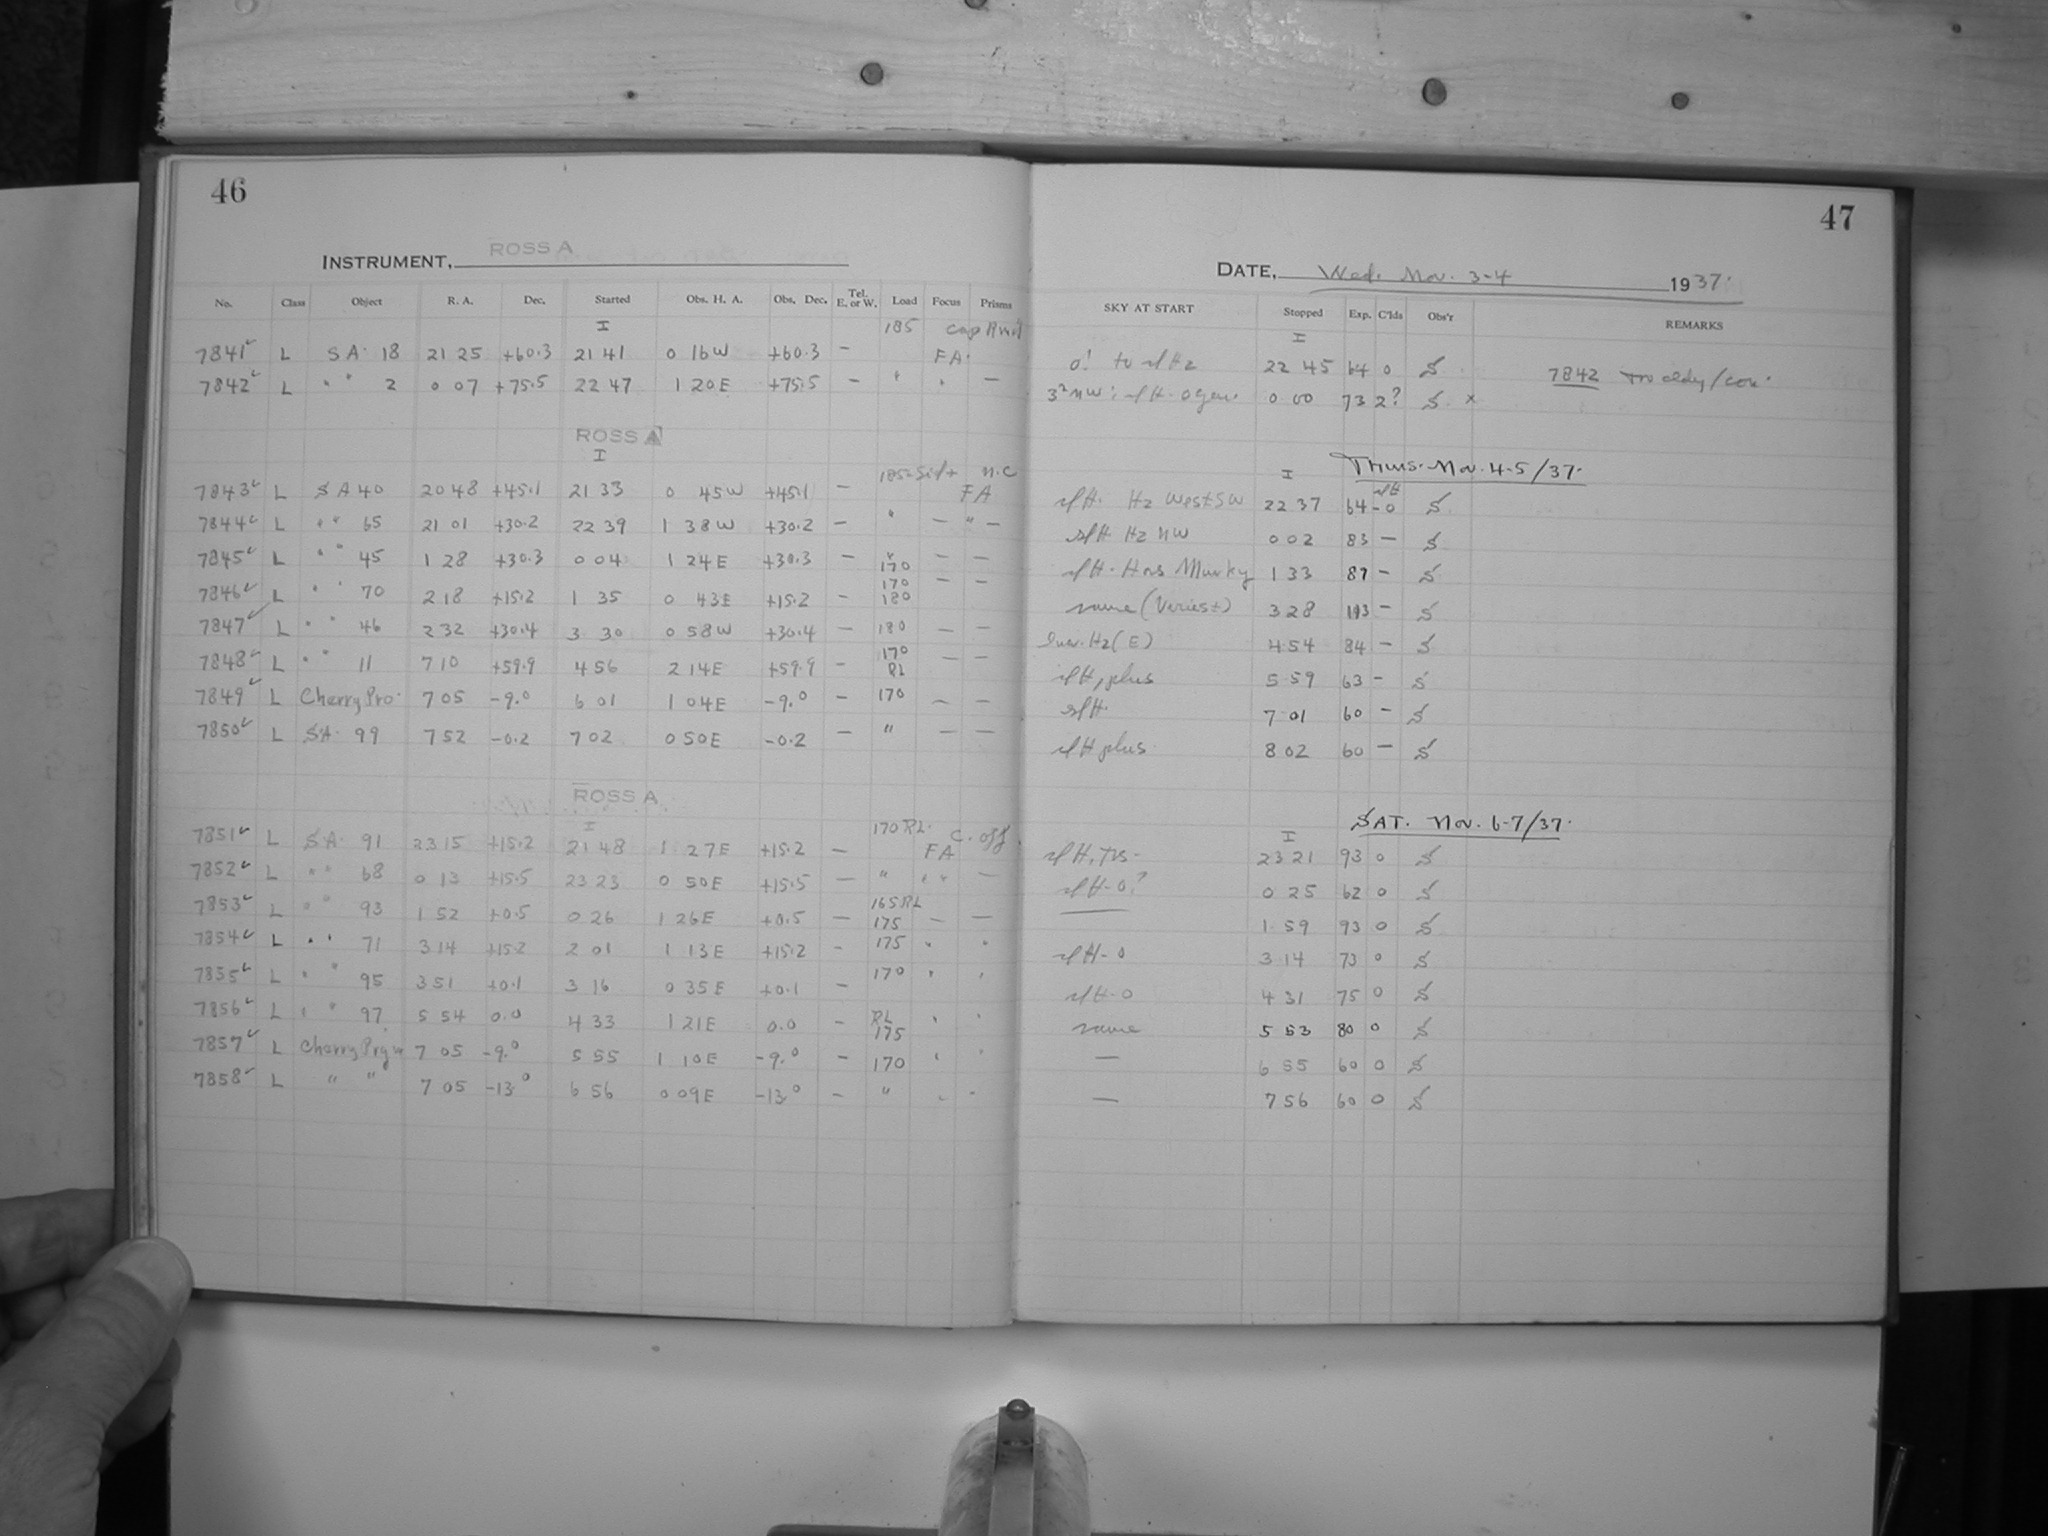 46
ROSS A
INSTRUMENT,
No. Class Object R. A. Dec. Started Obs. H. A. Obs. Dec. Tel. E. or W. Load Focus Prisms
I 185
7841 L SA. 18 21 25 +60.3 21 41 0 16W +60.3 — FA.
7842 L " " 2 0 07 +75.5 22 47 1 20E +75.5 — " " —
ROSS A
I
7843 L SA 40 20 48 +45.1 21 33 0 45W +45.1 — FA
7844 L " " 65 21 01 +30.2 22 39 1 38W +30.2 — " — " —
7845 L " " 45 1 28 +30.3 0 04 1 24E +30.3 — " 170 — —
7846 L " " 70 2 18 +15.2 1 35 0 43E +15.2 — 170 180 — —
7847 L " " 46 2 32 +30.4 3 30 0 58W +30.4 — 180 — —
7848 L " " 11 7 10 +59.9 4 56 2 14E +59.9 — 170 RL — —
7849 L Cherry Pro. 7 05 -9.0 6 01 1 04E -9.0 — 170 — —
7850 L SA. 99 7 52 -0.2 7 02 0 50E -0.2 — " — —
ROSS A
I 170 RL. C. off
7851 L SA. 91 23 15 +15.2 21 48 1 27E +15.2 — FA
7852 L " " 68 0 13 +15.5 23 23 0 50E +15.5 — " " " —
7853 L " " 93 1 52 +0.5 0 26 1 26E +0.5 — 165RL 175 — —
7854 L " " 71 3 14 +15.2 2 01 1 13E +15.2 — 175 " "
7855 L " " 95 3 51 +0.1 3 16 0 35E +0.1 — 170 " "
7856 L " " 97 5 54 0.0 4 33 1 21E 0.0 — RL 175 " "
7857 L Cherry 7 05 -9.0 5 55 1 10E -9.0 — 170 " "
7858 L " " 7 05 -13.0 6 56 0 09E -13.0 — " " "
47
DATE, Wed. Nov. 3-4 1937.
SKY AT START Stopped Exp. C'lds Obs'r REMARKS
I
0! to Hz 22 45 64 0 S 7842
73 2? S x 0 00
I Thurs. Nov. 4-5/37.
Hz West SW 22 37 64 -0 S
Hz NW 0 02 83 — S
Murky 1 33 89 — S
same 3 28 113 — S
Hz (E) 4 54 84 — S
plus 5 59 63 — S
7 01 60 — S
plus 8 02 60 — S
I SAT. Nov. 6-7/37.
23 21 93 0 S
0 25 62 0 S
1 59 93 0 S
3 14 73 0 S
4 31 75 0 S
same 5 53 80 0 S
— 6 55 60 0 S
— 7 56 60 0 S